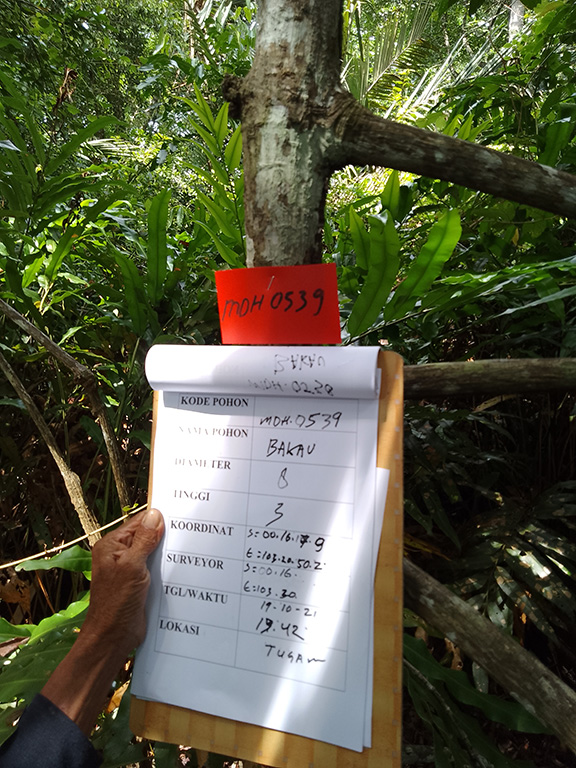 MDH 0539
BAKAU
KODE POHON MDH.0539
NAMA POHON BAKAU
DIAMETER 8
TINGGI 3
KOORDINAT S=00.16.17.9
E=103.20.50.2
SURVEYOR S=00.16.
E=103.30.
TGL/WAKTU 19-10-21
13.42
LOKASI TUGAM